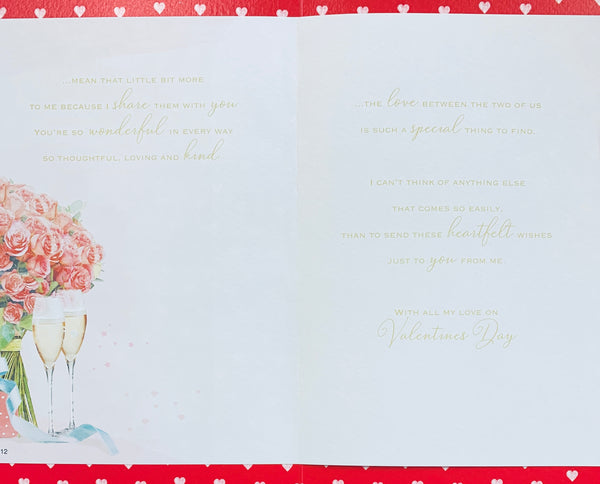 ...MEAN THAT LITTLE BIT MORE
TO ME BECAUSE I share THEM WITH you
YOU'RE SO wonderful IN EVERY WAY
SO THOUGHTFUL, LOVING AND kind
12
...THE love BETWEEN THE TWO OF US
IS SUCH A special THING TO FIND,
I CAN'T THINK OF ANYTHING ELSE
THAT COMES SO EASILY,
THAN TO SEND THESE heartfelt WISHES
JUST TO you FROM ME.
WITH ALL MY LOVE ON
Valentines Day